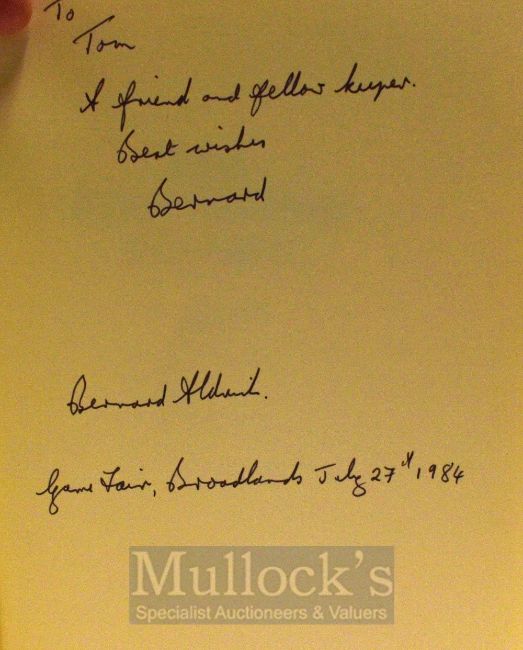 To
Tom
A friend and fellow keeper.
Best wishes
Bernard
Bernard Aldrich.
Game Fair, Broadlands July 27th 1984
Mullock's
Specialist Auctioneers & Valuers